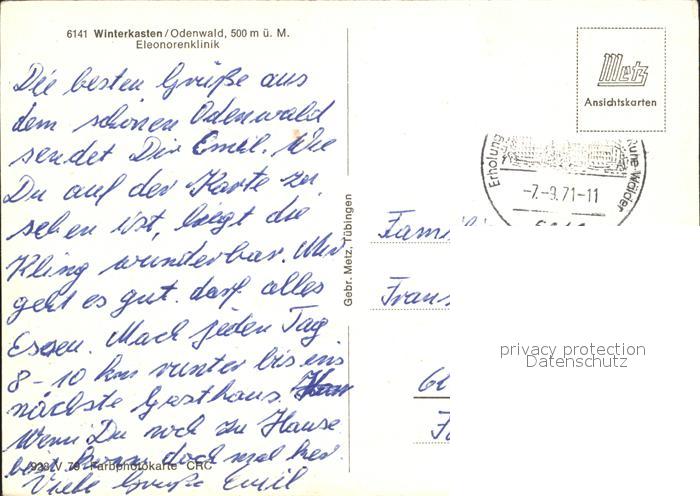 6141 Winterkasten/Odenwald, 500 m ü. M.
Eleonorenklinik
Die besten Grüße aus
dem schönen Odenwald
sendet Dir Emil. Wie
Du auf der Karte zu
sehen ist, liegt die
Kling wunderbar. Mir
geht es gut. darf alles
Essen. Mach jeden Tag
8-10 km runter bis ins
nächste Gasthaus.
Wenn Du noch zu Hause
bist komm doch mal her.
Viele Grüße Emil
Farbphotokarte CRC
Gebr. Metz, Tübingen
Metz
Ansichtskarten
Erholung
Ruhe-Wälder
-7.-9.71-11
Fam
Frans
privacy protection
Datenschutz